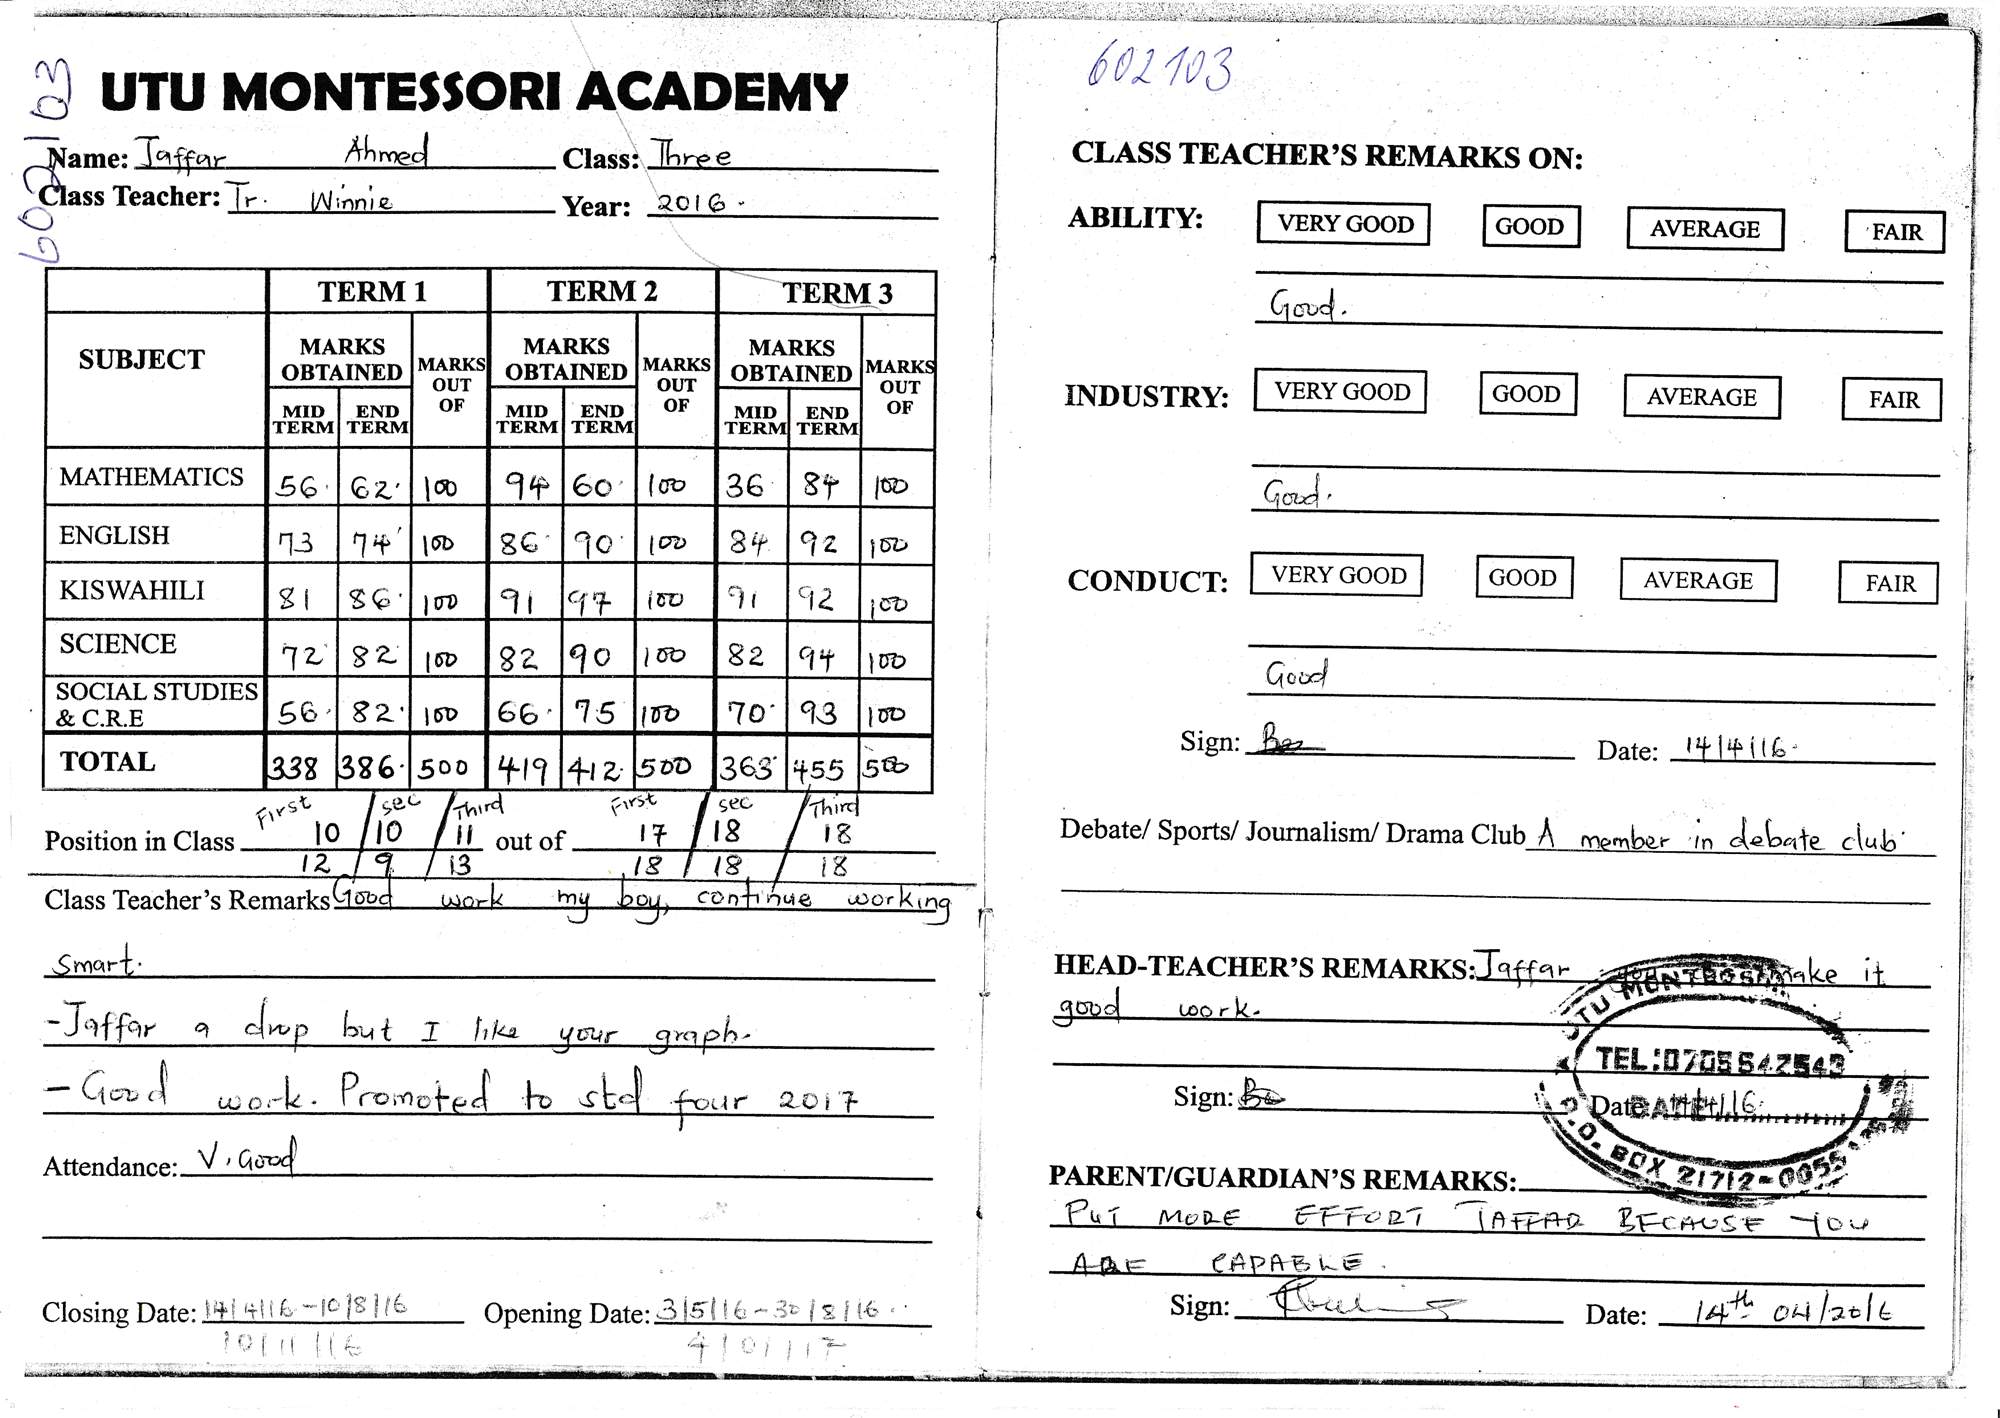 602103
UTU MONTESSORI ACADEMY
Name: Jaffar Ahmed Class: Three
Class Teacher: Tr. Winnie Year: 2016.
TERM 1 TERM 2 TERM 3
SUBJECT MARKS OBTAINED MARKS OUT OF MARKS OBTAINED MARKS OUT OF MARKS OBTAINED MARKS OUT OF
MID TERM END TERM MID TERM END TERM MID TERM END TERM
MATHEMATICS 56 62 100 94 60 100 36 84 100
ENGLISH 73 74 100 86 90 100 84 92 100
KISWAHILI 81 86 100 91 97 100 91 92 100
SCIENCE 72 82 100 82 90 100 82 94 100
SOCIAL STUDIES & C.R.E 56 82 100 66 75 100 70 93 100
TOTAL 338 386 500 419 412 500 363 455 500
First / sec / Third First / sec / Third
Position in Class 10 / 10 / 11 out of 17 / 18 / 18
12 / 9 / 13 18 / 18 / 18
Class Teacher's Remarks Good work my boy, continue working
smart.
- Jaffar a drop but I like your graph.
- Good work. Promoted to std four 2017
Attendance: V. Good
Closing Date: 14/4/16 - 10/8/16 Opening Date: 3/5/16 - 30/8/16
10/11/16 4/01/17
602103
CLASS TEACHER'S REMARKS ON:
ABILITY: VERY GOOD GOOD AVERAGE FAIR
Good.
INDUSTRY: VERY GOOD GOOD AVERAGE FAIR
Good.
CONDUCT: VERY GOOD GOOD AVERAGE FAIR
Good
Sign: Date: 14/4/16.
Debate/ Sports/ Journalism/ Drama Club A member in debate club
HEAD-TEACHER'S REMARKS: Jaffar make it
good work.
Sign: Date: 14/4/16.
UTU MONTESSORI
TEL:0705642543
DATE
P.O. BOX 21712-005
PARENT/GUARDIAN'S REMARKS:
PUT MORE EFFORT JAFFAR BECAUSE YOU
ARE CAPABLE.
Sign: Date: 14th 04/2016